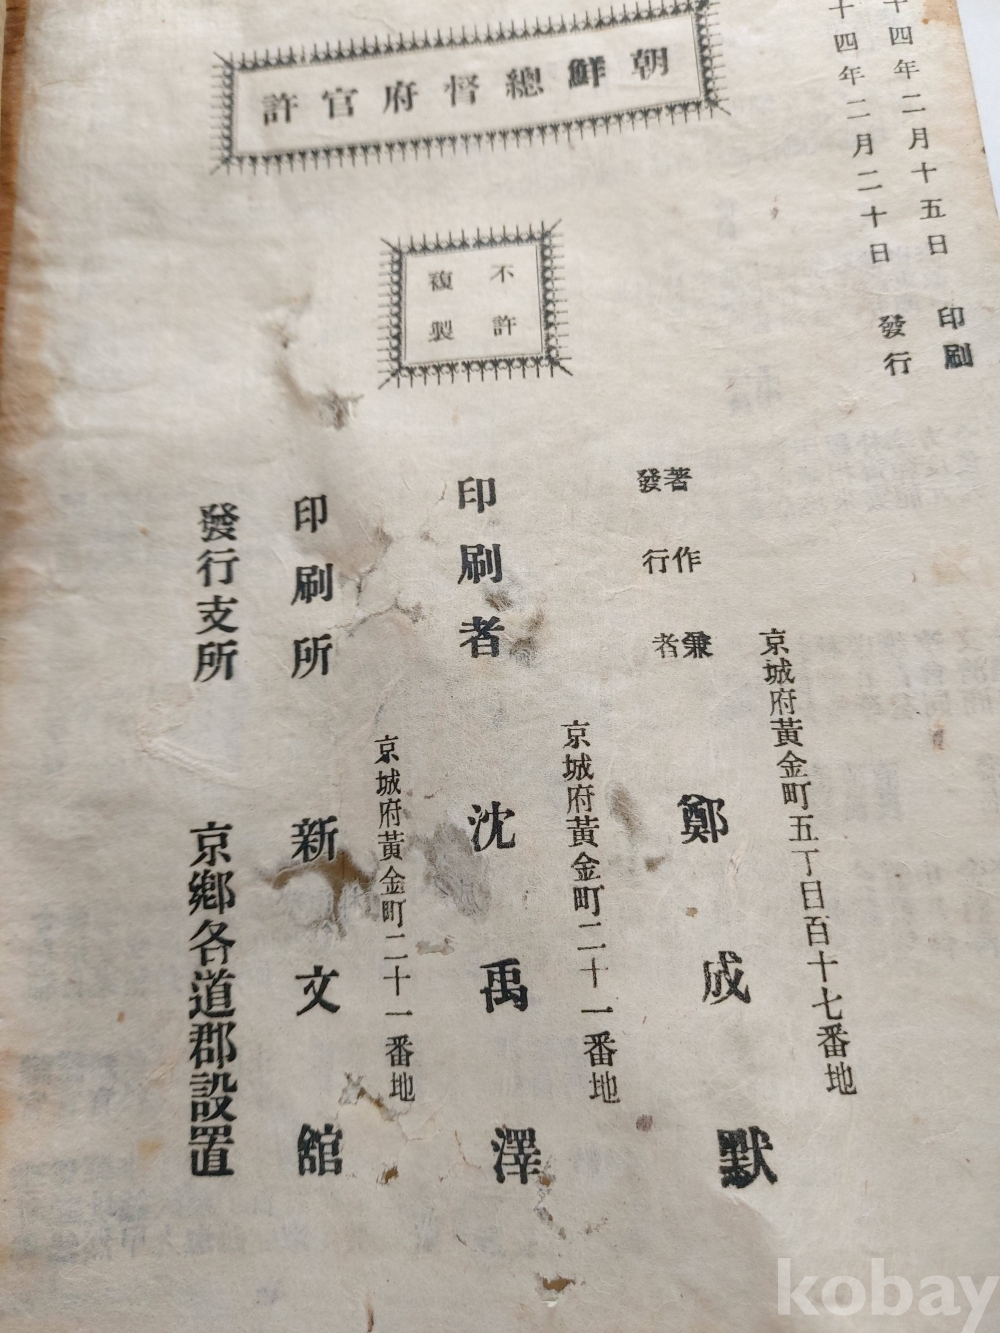 十四年二月十五日 印刷
十四年二月二十日 發行
朝鮮總督府官許
不許
複製
京城府黃金町五丁目百十七番地
著作兼
發行者
鄭成默
京城府黃金町二十一番地
印刷者 沈禹澤
京城府黃金町二十一番地
印刷所 新文館
發行支所 京鄉各道郡設置
kobay